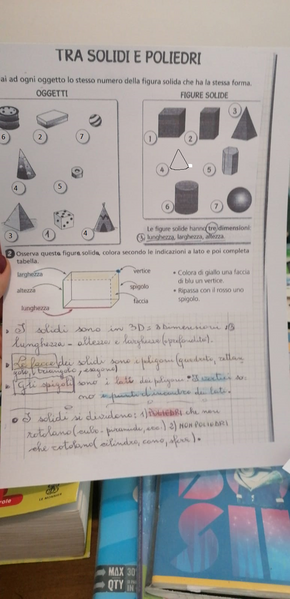 TRA SOLIDI E POLIEDRI
ai ad ogni oggetto lo stesso numero della figura solida che ha la stessa forma.
OGGETTI
FIGURE SOLIDE
6 2 7
4 5
3 1 4
3
1 2
4 5
6 7
Le figure solide hanno tre dimensioni:
lunghezza, larghezza, altezza.
2 Osserva questa figura solida, colora secondo le indicazioni a lato e poi completa
tabella.
larghezza
altezza
lunghezza
vertice
spigolo
faccia
• Colora di giallo una faccia
di blu un vertice.
• Ripassa con il rosso uno
spigolo.
I solidi sono in 3D = 3 dimensioni:
lunghezza - altezza e larghezza (profondità).
Le facce dei solidi sono i poligoni (quadrato,
triangolo, esagono)
Gli spigoli sono i lati dei poligoni • I vertici so
no i punti d'incontro dei lati.
I solidi si dividono: 1) POLIEDRI che non
rotolano (cubo, piramide, ecc.) 2) NON POLIEDRI
che rotolano (cilindro, cono, sfera).
MAX 30
QTY